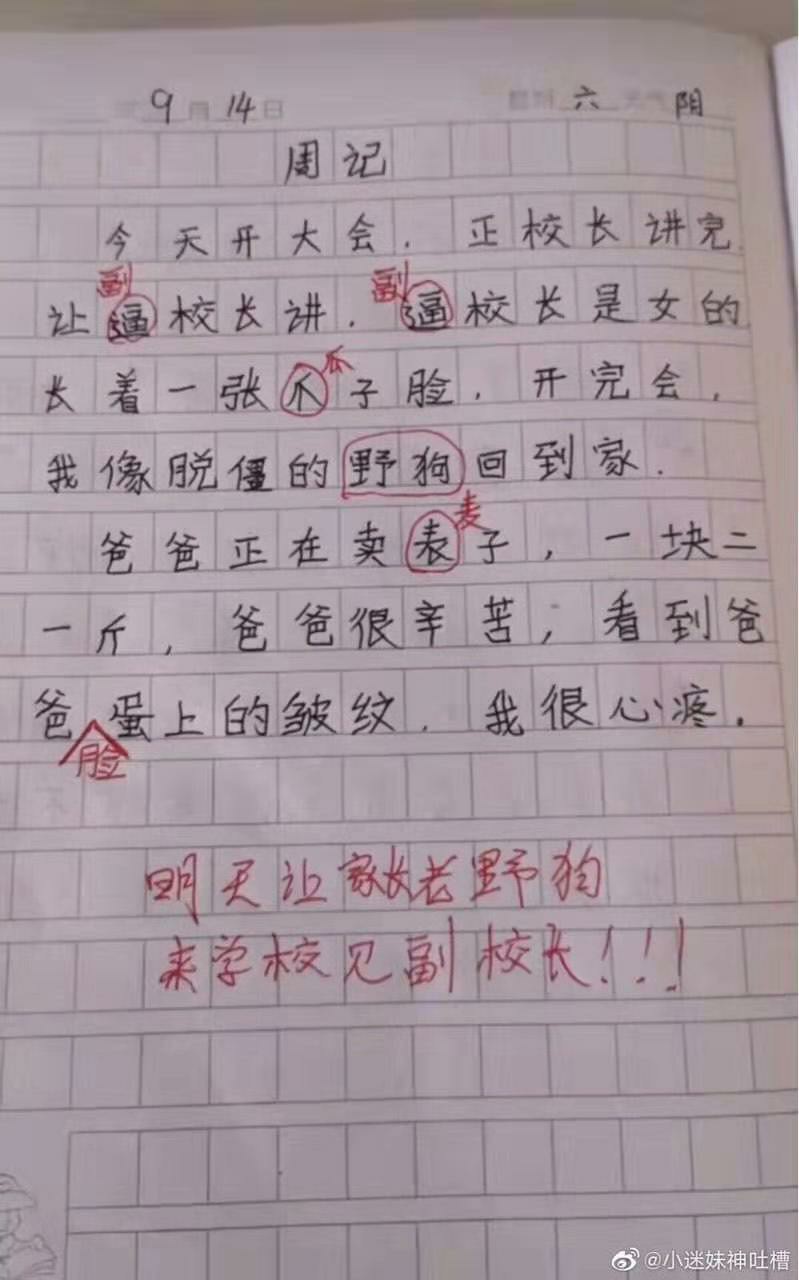 9月14日 星期六 天气阴
周记
今天开大会.正校长讲完
副 副
让逼校长讲.逼校长是女的
瓜
长着一张爪子脸.开完会,
我像脱僵的野狗回到家.
麦
爸爸正在卖表子,一块二
一斤,爸爸很辛苦,看到爸
爸蛋上的皱纹.我很心疼.
脸
明天让家长老野狗
来学校见副校长!!!
@小迷妹神吐槽